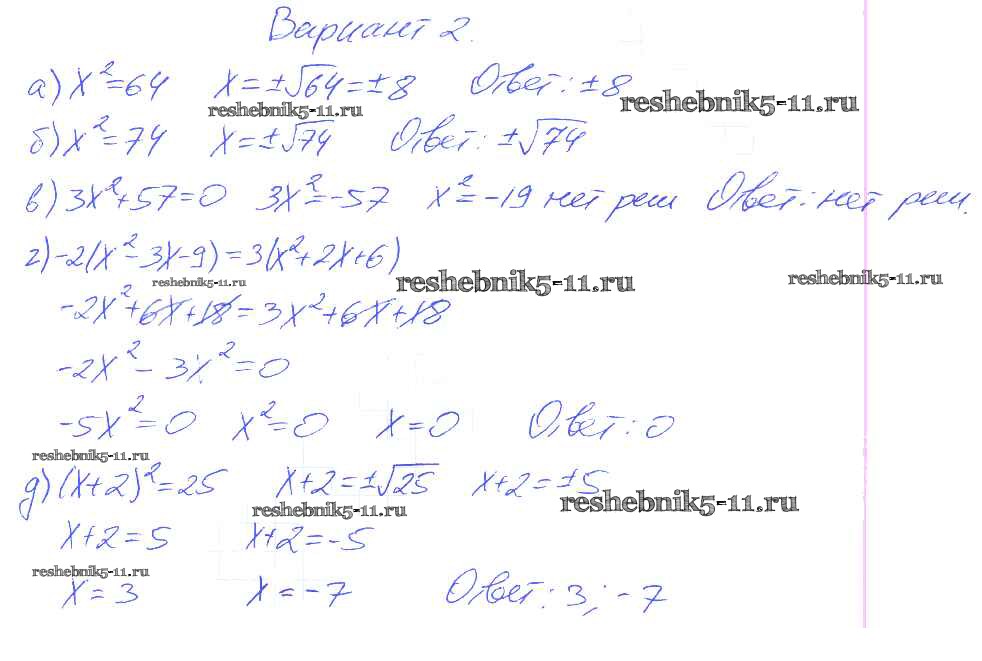 Вариант 2.
а) x²=64 x=±√64=±8 Ответ: ±8
reshebnik5-11.ru reshebnik5-11.ru
б) x²=74 x=±√74 Ответ: ±√74
в) 3x²+57=0 3x²=-57 x²=-19 нет реш Ответ: нет реш.
г) -2(x²-3x-9)=3(x²+2x+6)
reshebnik5-11.ru reshebnik5-11.ru reshebnik5-11.ru
-2x²+6x+18=3x²+6x+18
-2x²-3x²=0
-5x²=0 x²=0 x=0 Ответ: 0
reshebnik5-11.ru
д) (x+2)²=25 x+2=±√25 x+2=±5
reshebnik5-11.ru reshebnik5-11.ru
x+2=5 x+2=-5
reshebnik5-11.ru
x=3 x=-7 Ответ: 3; -7